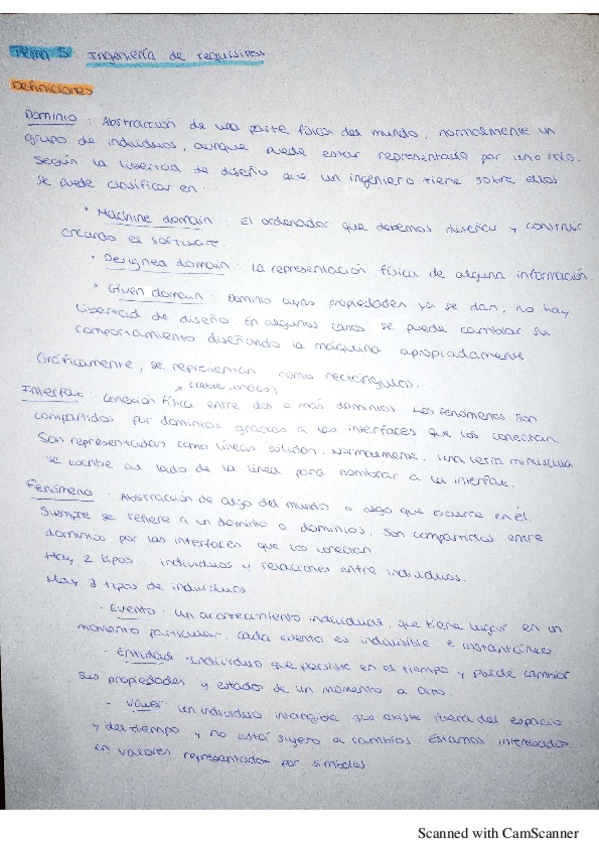 Tema 5: Ingeniería de requisitos
Definiciones
Dominio: Abstracción de una parte física del mundo, normalmente un
grupo de individuos, aunque puede estar representado por uno solo.
Según la libertad de diseño que un ingeniero tiene sobre ellos
se puede clasificar en:
· Machine domain: El ordenador que debemos diseñar y construir
creando el software
· Designed domain: La representación física de alguna información
· Given domain: Dominio cuyas propiedades ya se dan, no hay
libertad de diseño. En algunos casos se puede cambiar su
comportamiento diseñando la máquina apropiadamente
Gráficamente, se representan como rectángulos.
(cable, ondas)
Interfaz: Conexión física entre dos o más dominios. Los fenómenos son
compartidos por dominios gracias a las interfaces que los conectan.
Son representadas como líneas sólidas. Normalmente, una letra minúscula
se escribe al lado de la línea para nombrar a la interfaz.
Fenómeno: Abstracción de algo del mundo o algo que ocurre en él.
Siempre se refiere a un dominio o dominios. Son compartidos entre
dominios por las interfaces que los conectan.
Hay 2 tipos: individuos y relaciones entre individuos.
Hay 3 tipos de individuos
- Evento: Un acontecimiento individual, que tiene lugar en un
momento particular. Cada evento es indivisible e instantáneo.
- Entidad: Individuo que persiste en el tiempo y puede cambiar
sus propiedades y estados de un momento a otro
- Valor: un individuo intangible que existe fuera del espacio
y del tiempo y no está sujeto a cambios. Estamos interesados
en valores representados por símbolos
Scanned with CamScanner